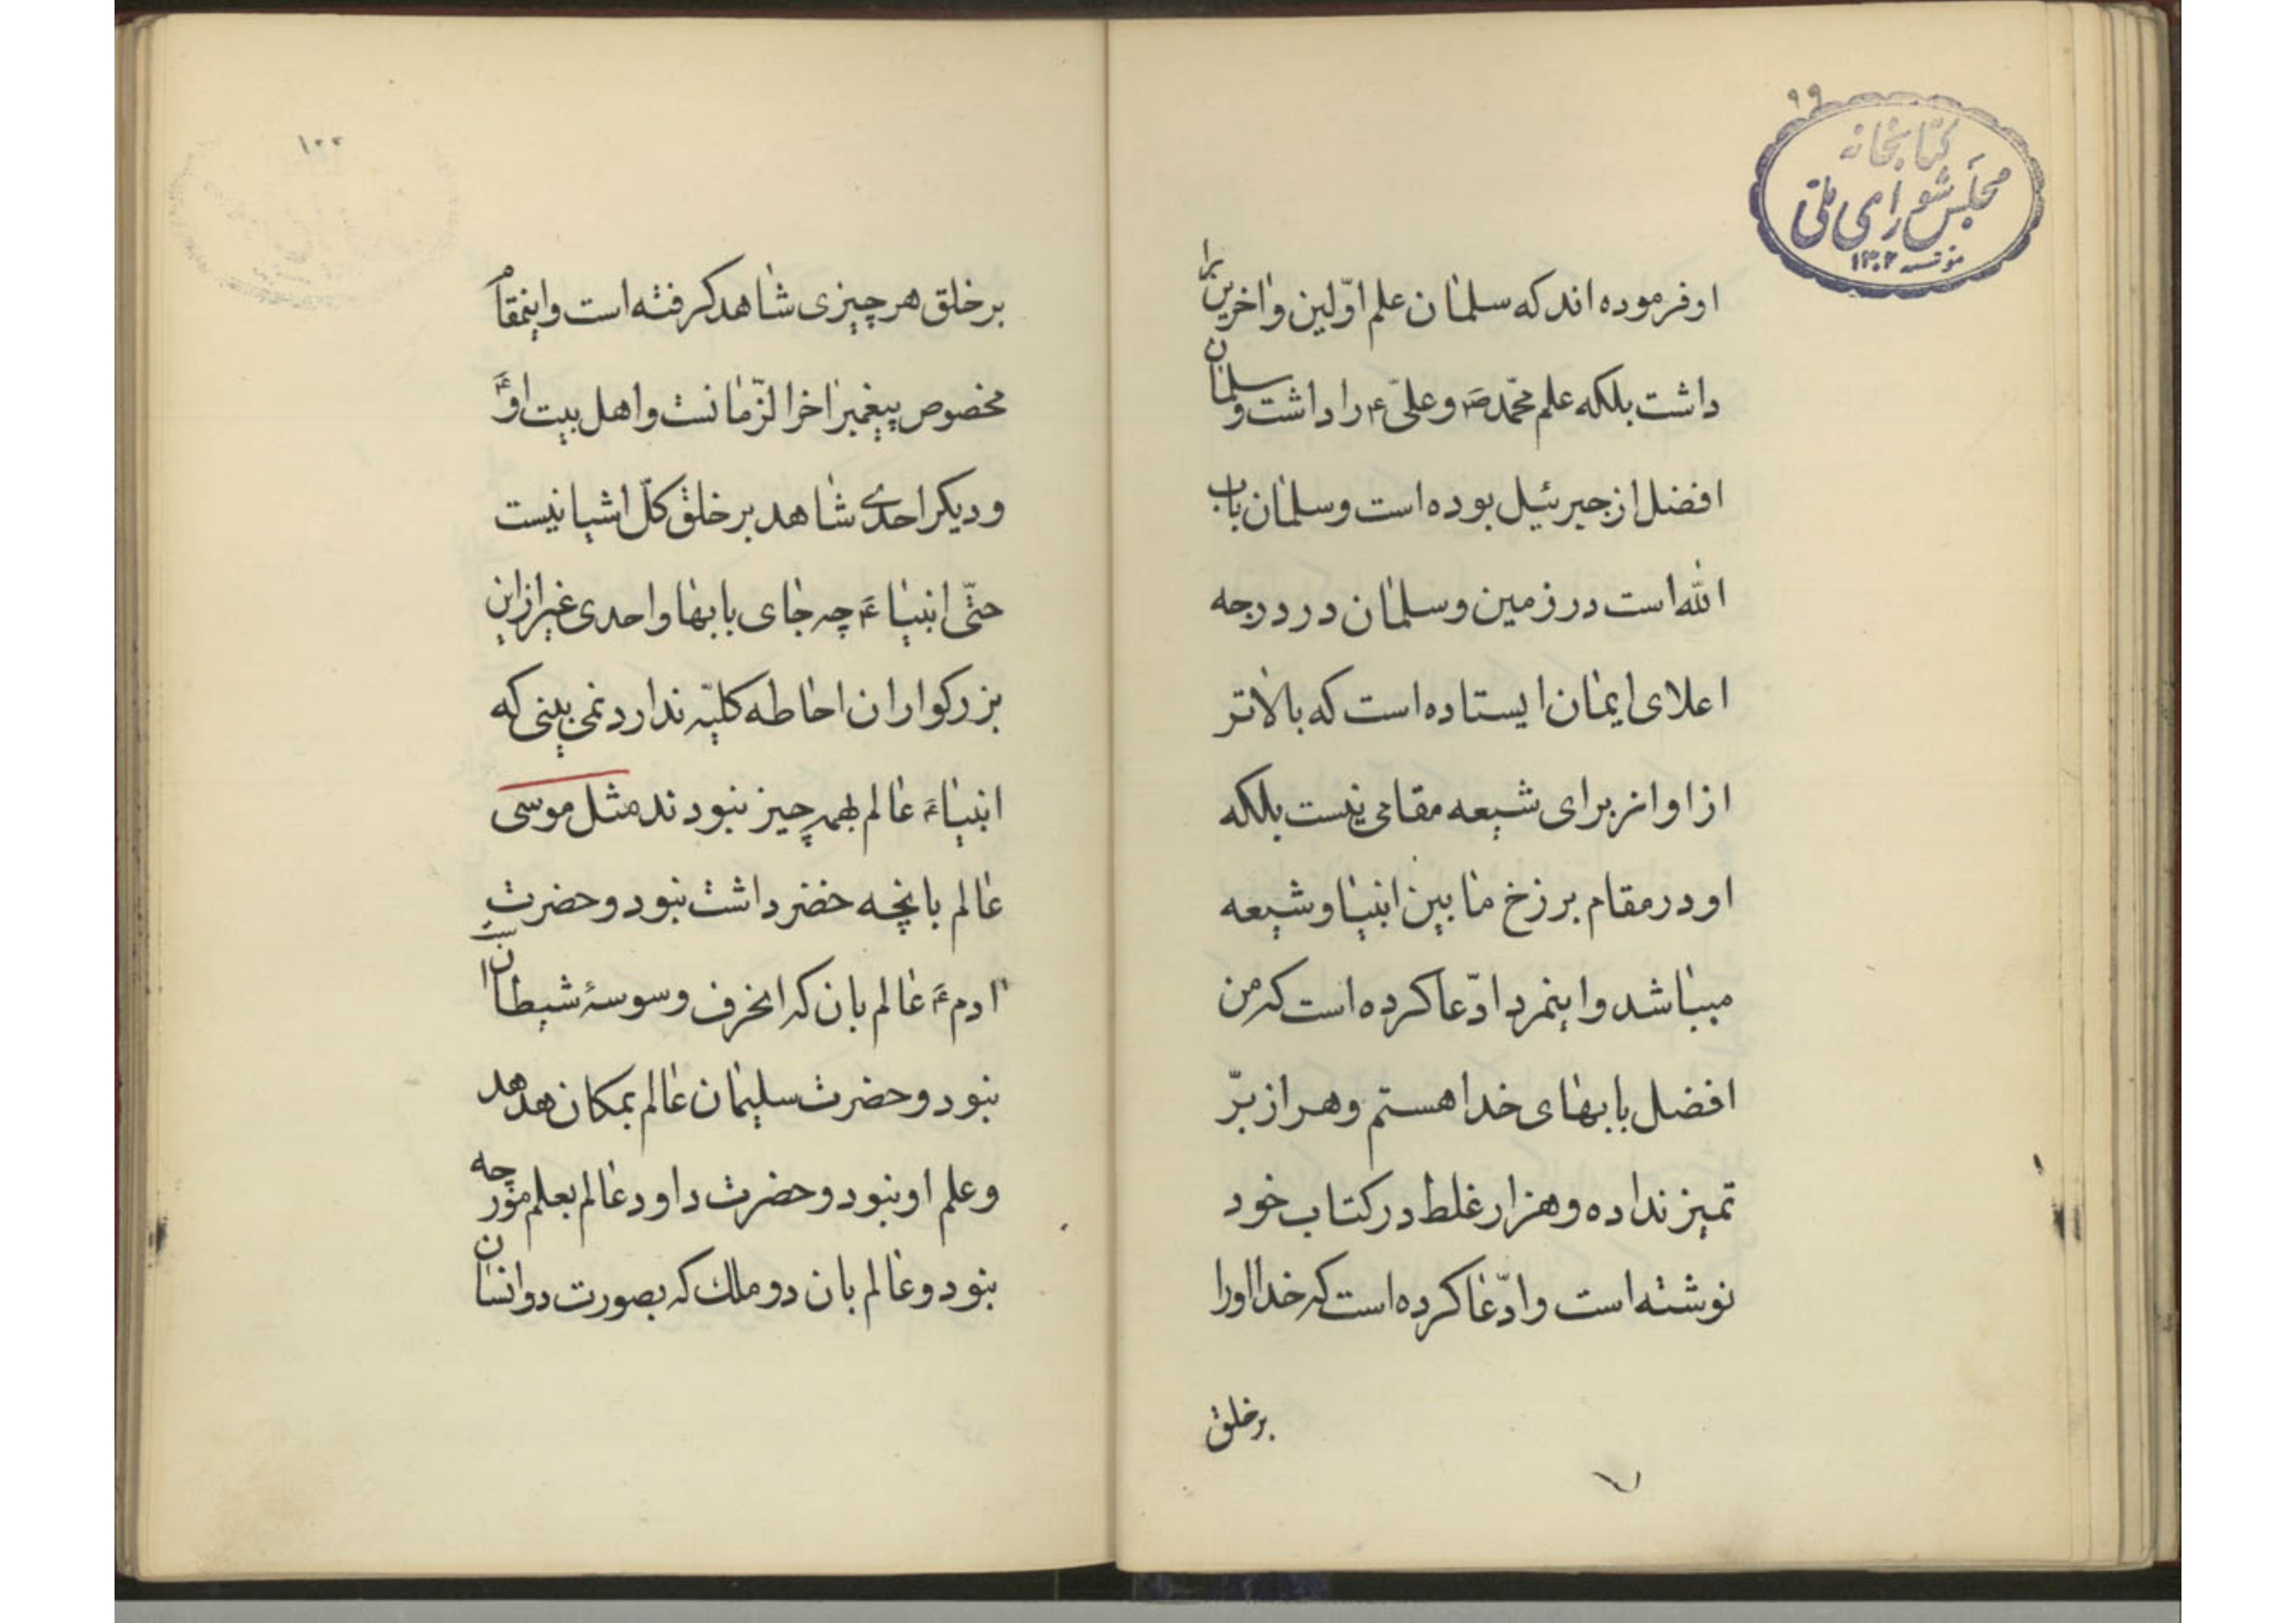 ۹۹
کتابخانه
مجلس شورای ملی
مؤسسه ۱۳۰۲
او فرموده اند که سلمان علم اوّلین و اخرین را
داشت بلکه علم محمّد ص و علیّ ع را داشت و سلمان
افضل از جبرئیل بوده است و سلمان باب
الله است در زمین و سلمان در درجه
اعلای ایمان ایستاده است که بالاتر
از او از برای شیعه مقامی نیست بلکه
او در مقام برزخ ما بین انبیا و شیعه
میباشد و اینمرد ادّعا کرده است که من
افضل بابهای خدا هستم و هر از برّ
تمیز نداده و هزار غلط در کتاب خود
نوشته است و ادّعا کرده است که خدا او را
بر خلق
۱۰۰
بر خلق هر چیزی شاهد کرفته است و اینمقام
مخصوص پیغمبر اخر الزّمانست و اهل بیت او ع
و دیکر احدی شاهد بر خلق کلّ اشیا نیست
حتّی انبیاء ع چه جای بابها و احدی غیر از این
بزرکواران احاطه کلیّه ندارد نمی بینی که
انبیاء ع عالم بهمه چیز نبودند مثل موسی
عالم بانچه خضر داشت نبود و حضرت
ادم ع عالم بان که انحرف وسوسهٔ شیطان است
نبود و حضرت سلیمان عالم بمکان هدهد
و علم او نبود و حضرت داود عالم بعلم مورچه
نبود و عالم بان دو ملک که بصورت دو انسان